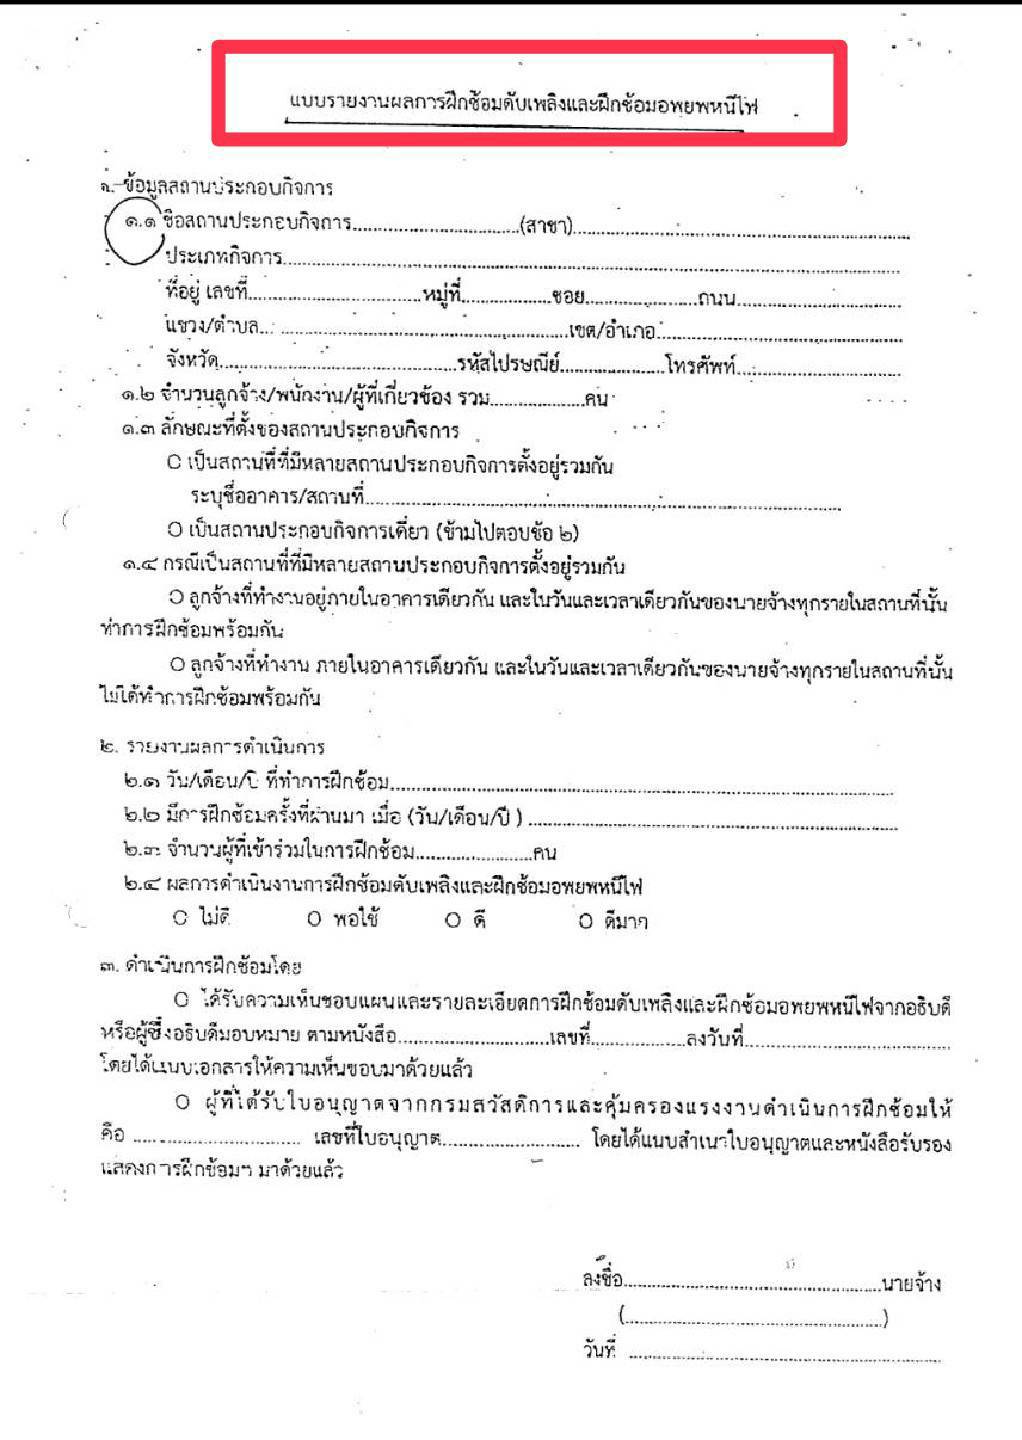 แบบรายงานผลการฝึกซ้อมดับเพลิงและฝึกซ้อมอพยพหนีไฟ
๑. ข้อมูลสถานประกอบกิจการ
๑.๑ ชื่อสถานประกอบกิจการ................................(สาขา)................................
ประเภทกิจการ................................
ที่อยู่ เลขที่................................หมู่ที่................ซอย....................ถนน................................
แขวง/ตำบล................................เขต/อำเภอ................................
จังหวัด................................รหัสไปรษณีย์....................โทรศัพท์................................
๑.๒ จำนวนลูกจ้าง/พนักงาน/ผู้ที่เกี่ยวข้อง รวม....................คน
๑.๓ ลักษณะที่ตั้งของสถานประกอบกิจการ
O เป็นสถานที่ที่มีหลายสถานประกอบกิจการตั้งอยู่รวมกัน
ระบุชื่ออาคาร/สถานที่................................
O เป็นสถานประกอบกิจการเดี่ยว (ข้ามไปตอบข้อ ๒)
๑.๔ กรณีเป็นสถานที่ที่มีหลายสถานประกอบกิจการตั้งอยู่รวมกัน
O ลูกจ้างที่ทำงานอยู่ภายในอาคารเดียวกัน และในวันและเวลาเดียวกันของนายจ้างทุกรายในสถานที่นั้น
ทำการฝึกซ้อมพร้อมกัน
O ลูกจ้างที่ทำงาน ภายในอาคารเดียวกัน และในวันและเวลาเดียวกันของนายจ้างทุกรายในสถานที่นั้น
ไม่ได้ทำการฝึกซ้อมพร้อมกัน
๒. รายงานผลการดำเนินการ
๒.๑ วัน/เดือน/ปี ที่ทำการฝึกซ้อม................................
๒.๒ มีการฝึกซ้อมครั้งที่ผ่านมา เมื่อ (วัน/เดือน/ปี ) ................................
๒.๓ จำนวนผู้ที่เข้าร่วมในการฝึกซ้อม........................คน
๒.๔ ผลการดำเนินงานการฝึกซ้อมดับเพลิงและฝึกซ้อมอพยพหนีไฟ
O ไม่ดี O พอใช้ O ดี O ดีมาก
๓. ดำเนินการฝึกซ้อมโดย
O ได้รับความเห็นชอบแผนและรายละเอียดการฝึกซ้อมดับเพลิงและฝึกซ้อมอพยพหนีไฟจากอธิบดี
หรือผู้ซึ่งอธิบดีมอบหมาย ตามหนังสือ............................เลขที่..................ลงวันที่................................
โดยได้แนบเอกสารให้ความเห็นชอบมาด้วยแล้ว
O ผู้ที่ได้รับใบอนุญาตจากกรมสวัสดิการและคุ้มครองแรงงานดำเนินการฝึกซ้อมให้
คือ ................................ เลขที่ใบอนุญาต........................... โดยได้แนบสำเนาใบอนุญาตและหนังสือรับรอง
แสดงการฝึกซ้อมฯ มาด้วยแล้ว
ลงชื่อ................................นายจ้าง
(................................)
วันที่ ................................